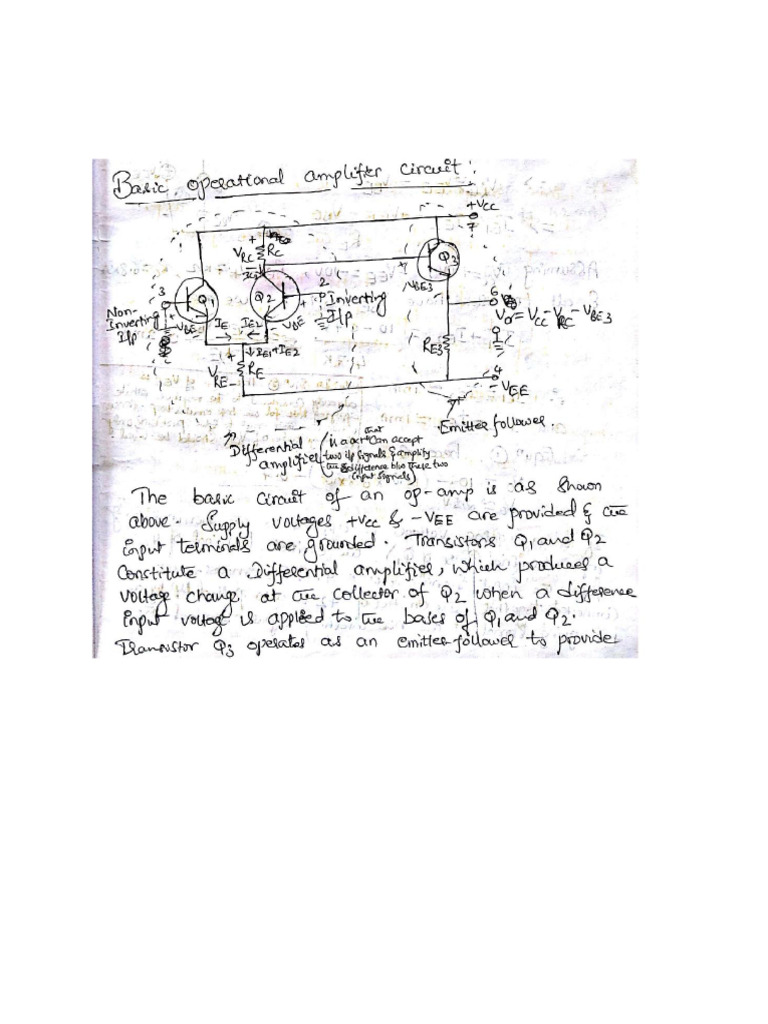 Basic operational amplifier circuit:
+VCC
7
+
VRC
RC
IC2
Q3
3
Q1
Q2
2
Inverting
I/P
Non-
Inverting
I/P
+
VBE
IE
IE2
VBE
+
+
VBE3
6
Vo = VCC - VRC - VBE3
+
↓IE1+IE2
VRE
RE
RE3
4
-VEE
Emitter follower.
Differential
amplifier
(is a ckt that can accept
two i/p signals & amplify
the difference b/w these two
input signals)
The basic circuit of an op-amp is as shown
above. Supply voltages +VCC & -VEE are provided & the
input terminals are grounded. Transistors Q1 and Q2
constitute a Differential amplifier, which produces a
voltage change at the collector of Q2 when a difference
input voltage is applied to the bases of Q1 and Q2.
Transistor Q3 operates as an emitter follower to provide